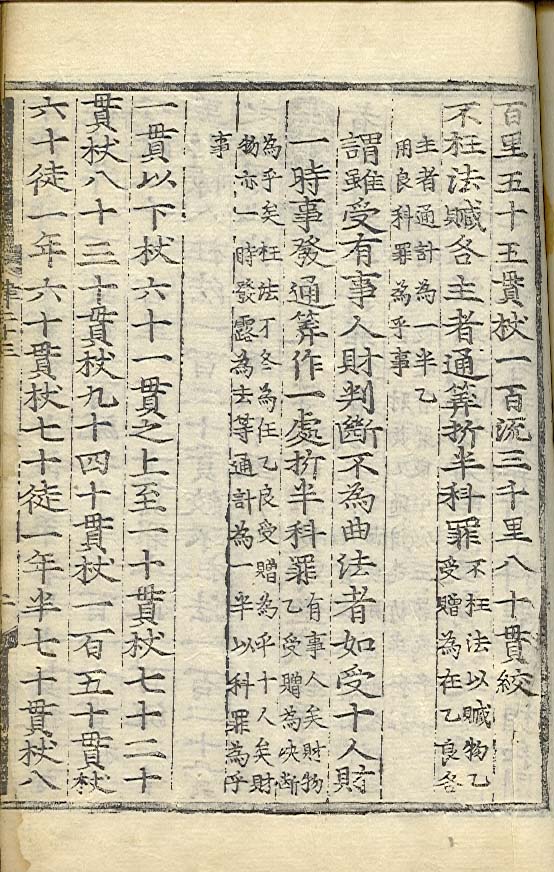 百里五十五貫杖一百流三千里八十貫絞
不枉法贓各主者通筭折半科罪
不枉法以贓物乙
受贈為在乙良各
主者通計為一半乙
用良科罪為乎事
謂雖受有事人財判斷不為曲法者如受十人財
一時事發通筭作一處折半科罪
有事人矣財物
乙受贈為决斷
為乎矣枉法不冬為在乙良受贈為乎十人矣財
物亦一時發露為去等通計為一半以科罪為乎
事
一貫以下杖六十一貫之上至一十貫杖七十二十
貫杖八十三十貫杖九十四十貫杖一百五十貫杖
六十徒一年六十貫杖七十徒一年半七十貫杖八